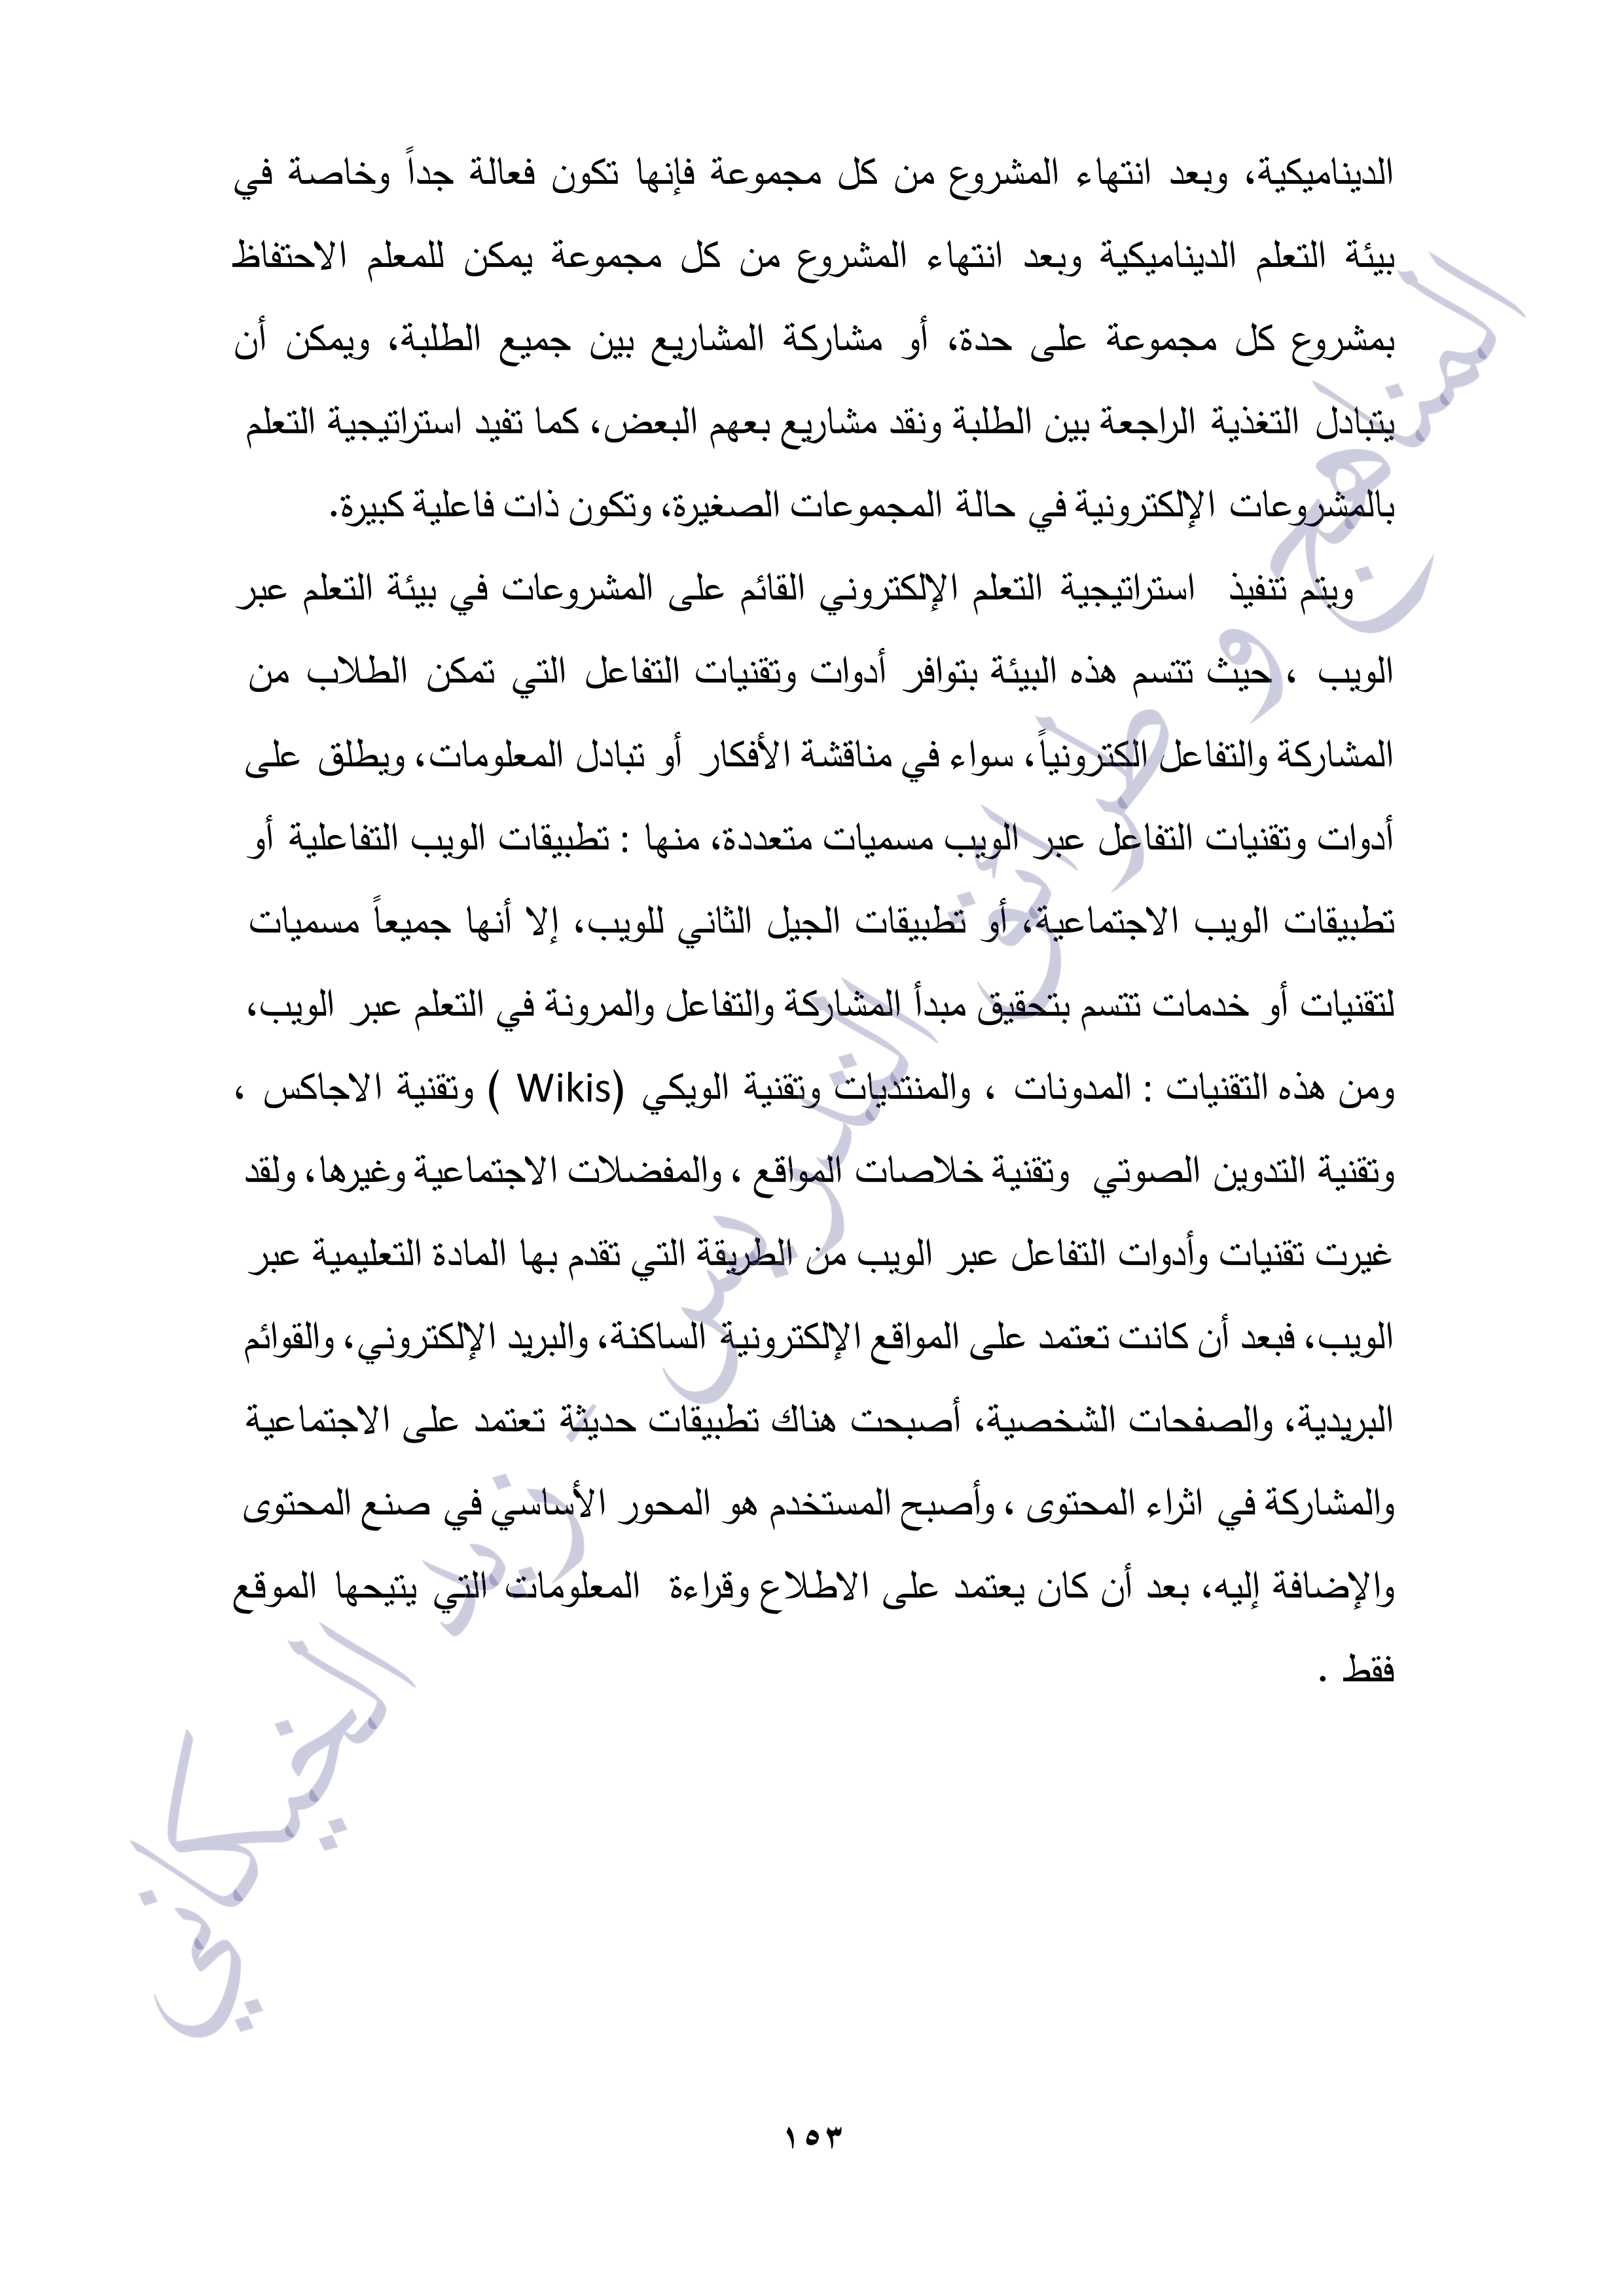 الديناميكية، وبعد انتهاء المشروع من كل مجموعة فإنها تكون فعالة جداً وخاصة في
بيئة التعلم الديناميكية وبعد انتهاء المشروع من كل مجموعة يمكن للمعلم الاحتفاظ
بمشروع كل مجموعة على حدة، أو مشاركة المشاريع بين جميع الطلبة، ويمكن أن
يتبادل التغذية الراجعة بين الطلبة ونقد مشاريع بعهم البعض، كما تفيد استراتيجية التعلم
بالمشروعات الإلكترونية في حالة المجموعات الصغيرة، وتكون ذات فاعلية كبيرة.
ويتم تنفيذ استراتيجية التعلم الإلكتروني القائم على المشروعات في بيئة التعلم عبر
الويب ، حيث تتسم هذه البيئة بتوافر أدوات وتقنيات التفاعل التي تمكن الطلاب من
المشاركة والتفاعل الكترونياً، سواء في مناقشة الأفكار أو تبادل المعلومات، ويطلق على
أدوات وتقنيات التفاعل عبر الويب مسميات متعددة، منها : تطبيقات الويب التفاعلية أو
تطبيقات الويب الاجتماعية، أو تطبيقات الجيل الثاني للويب، إلا أنها جميعاً مسميات
لتقنيات أو خدمات تتسم بتحقيق مبدأ المشاركة والتفاعل والمرونة في التعلم عبر الويب،
ومن هذه التقنيات : المدونات ، والمنتديات وتقنية الويكي (Wikis ) وتقنية الاجاكس ،
وتقنية التدوين الصوتي وتقنية خلاصات المواقع ، والمفضلات الاجتماعية وغيرها، ولقد
غيرت تقنيات وأدوات التفاعل عبر الويب من الطريقة التي تقدم بها المادة التعليمية عبر
الويب، فبعد أن كانت تعتمد على المواقع الإلكترونية الساكنة، والبريد الإلكتروني، والقوائم
البريدية، والصفحات الشخصية، أصبحت هناك تطبيقات حديثة تعتمد على الاجتماعية
والمشاركة في اثراء المحتوى ، وأصبح المستخدم هو المحور الأساسي في صنع المحتوى
والإضافة إليه، بعد أن كان يعتمد على الاطلاع وقراءة المعلومات التي يتيحها الموقع
فقط .
المناهج و طرائق التدريس - زيد الخيكاني
١٥٣